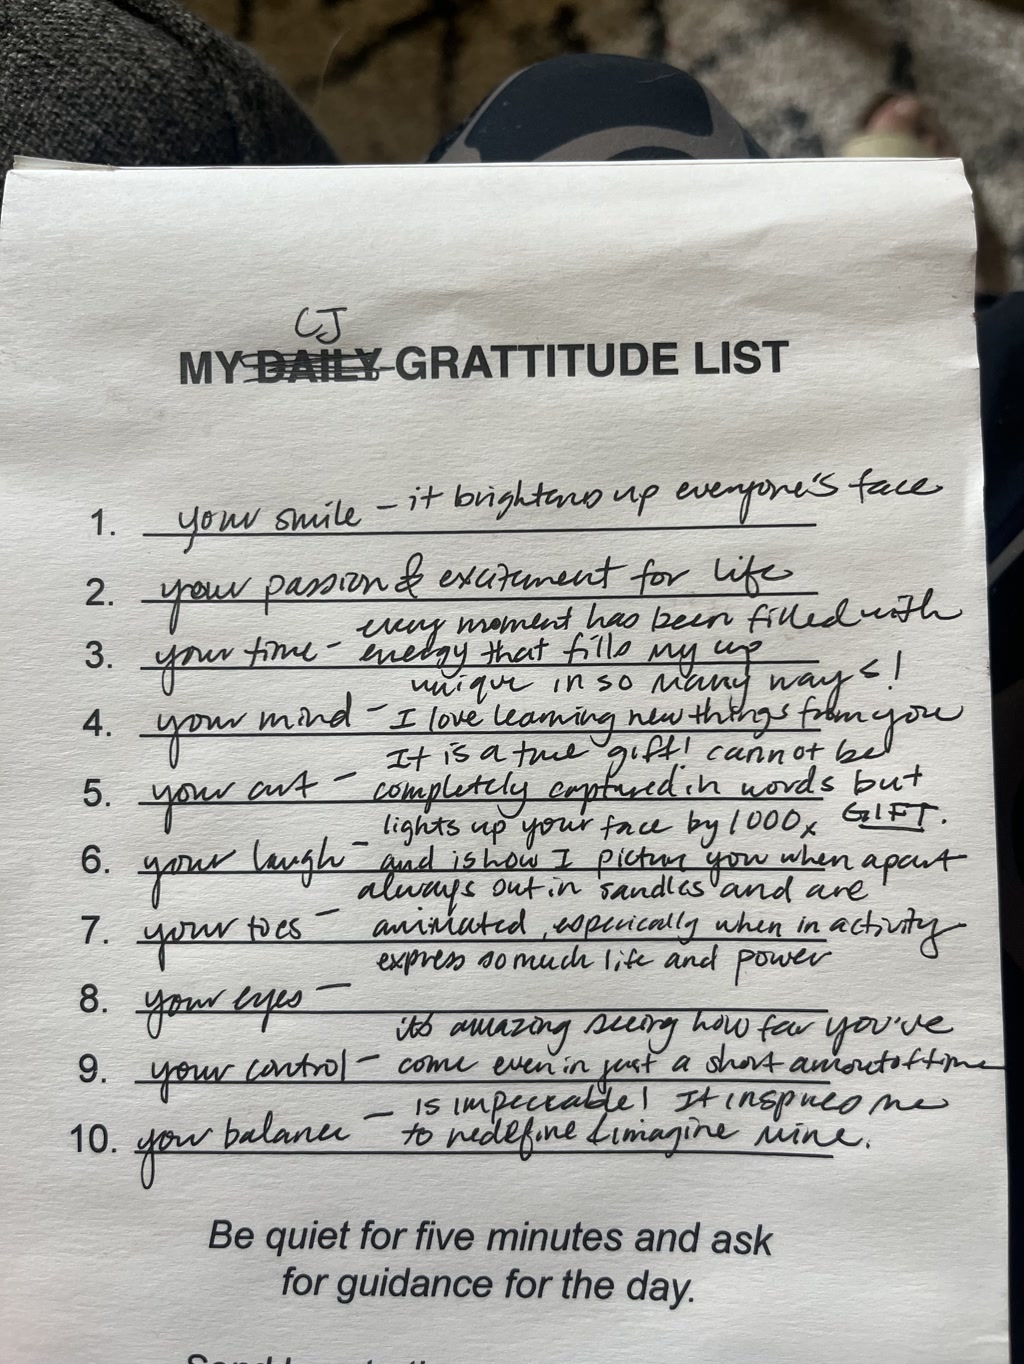 CJ
MY DAILY GRATTITUDE LIST
1. your smile - it brightens up everyone's face
2. your passion & excitement for life
every moment has been filled with
3. your time - energy that fills my cup
unique in so many ways!
4. your mind - I love learning new things from you
It is a true gift! cannot be
5. your art - completely captured in words but GIFT.
lights up your face by 1000x
6. your laugh - and is how I picture you when apart
always out in sandles and are
7. your toes - animated, especically when in activity
express so much life and power
8. your eyes -
its amazing seeing how far you've
9. your control - come even in just a short amout of time
is impeccable! It inspires me
10. your balance - to redefine & imagine mine.
Be quiet for five minutes and ask
for guidance for the day.